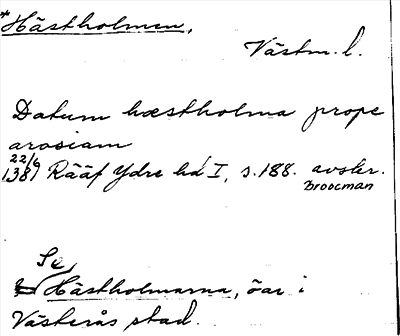 *Hästholmen,
Västm. l.
Datum hæstholma prope
arosiam
22/6
1381 Rääf Ydre hd I, s. 188. avskr.
Broocman
Se
Hästholmarna, öar i
Västerås stad.